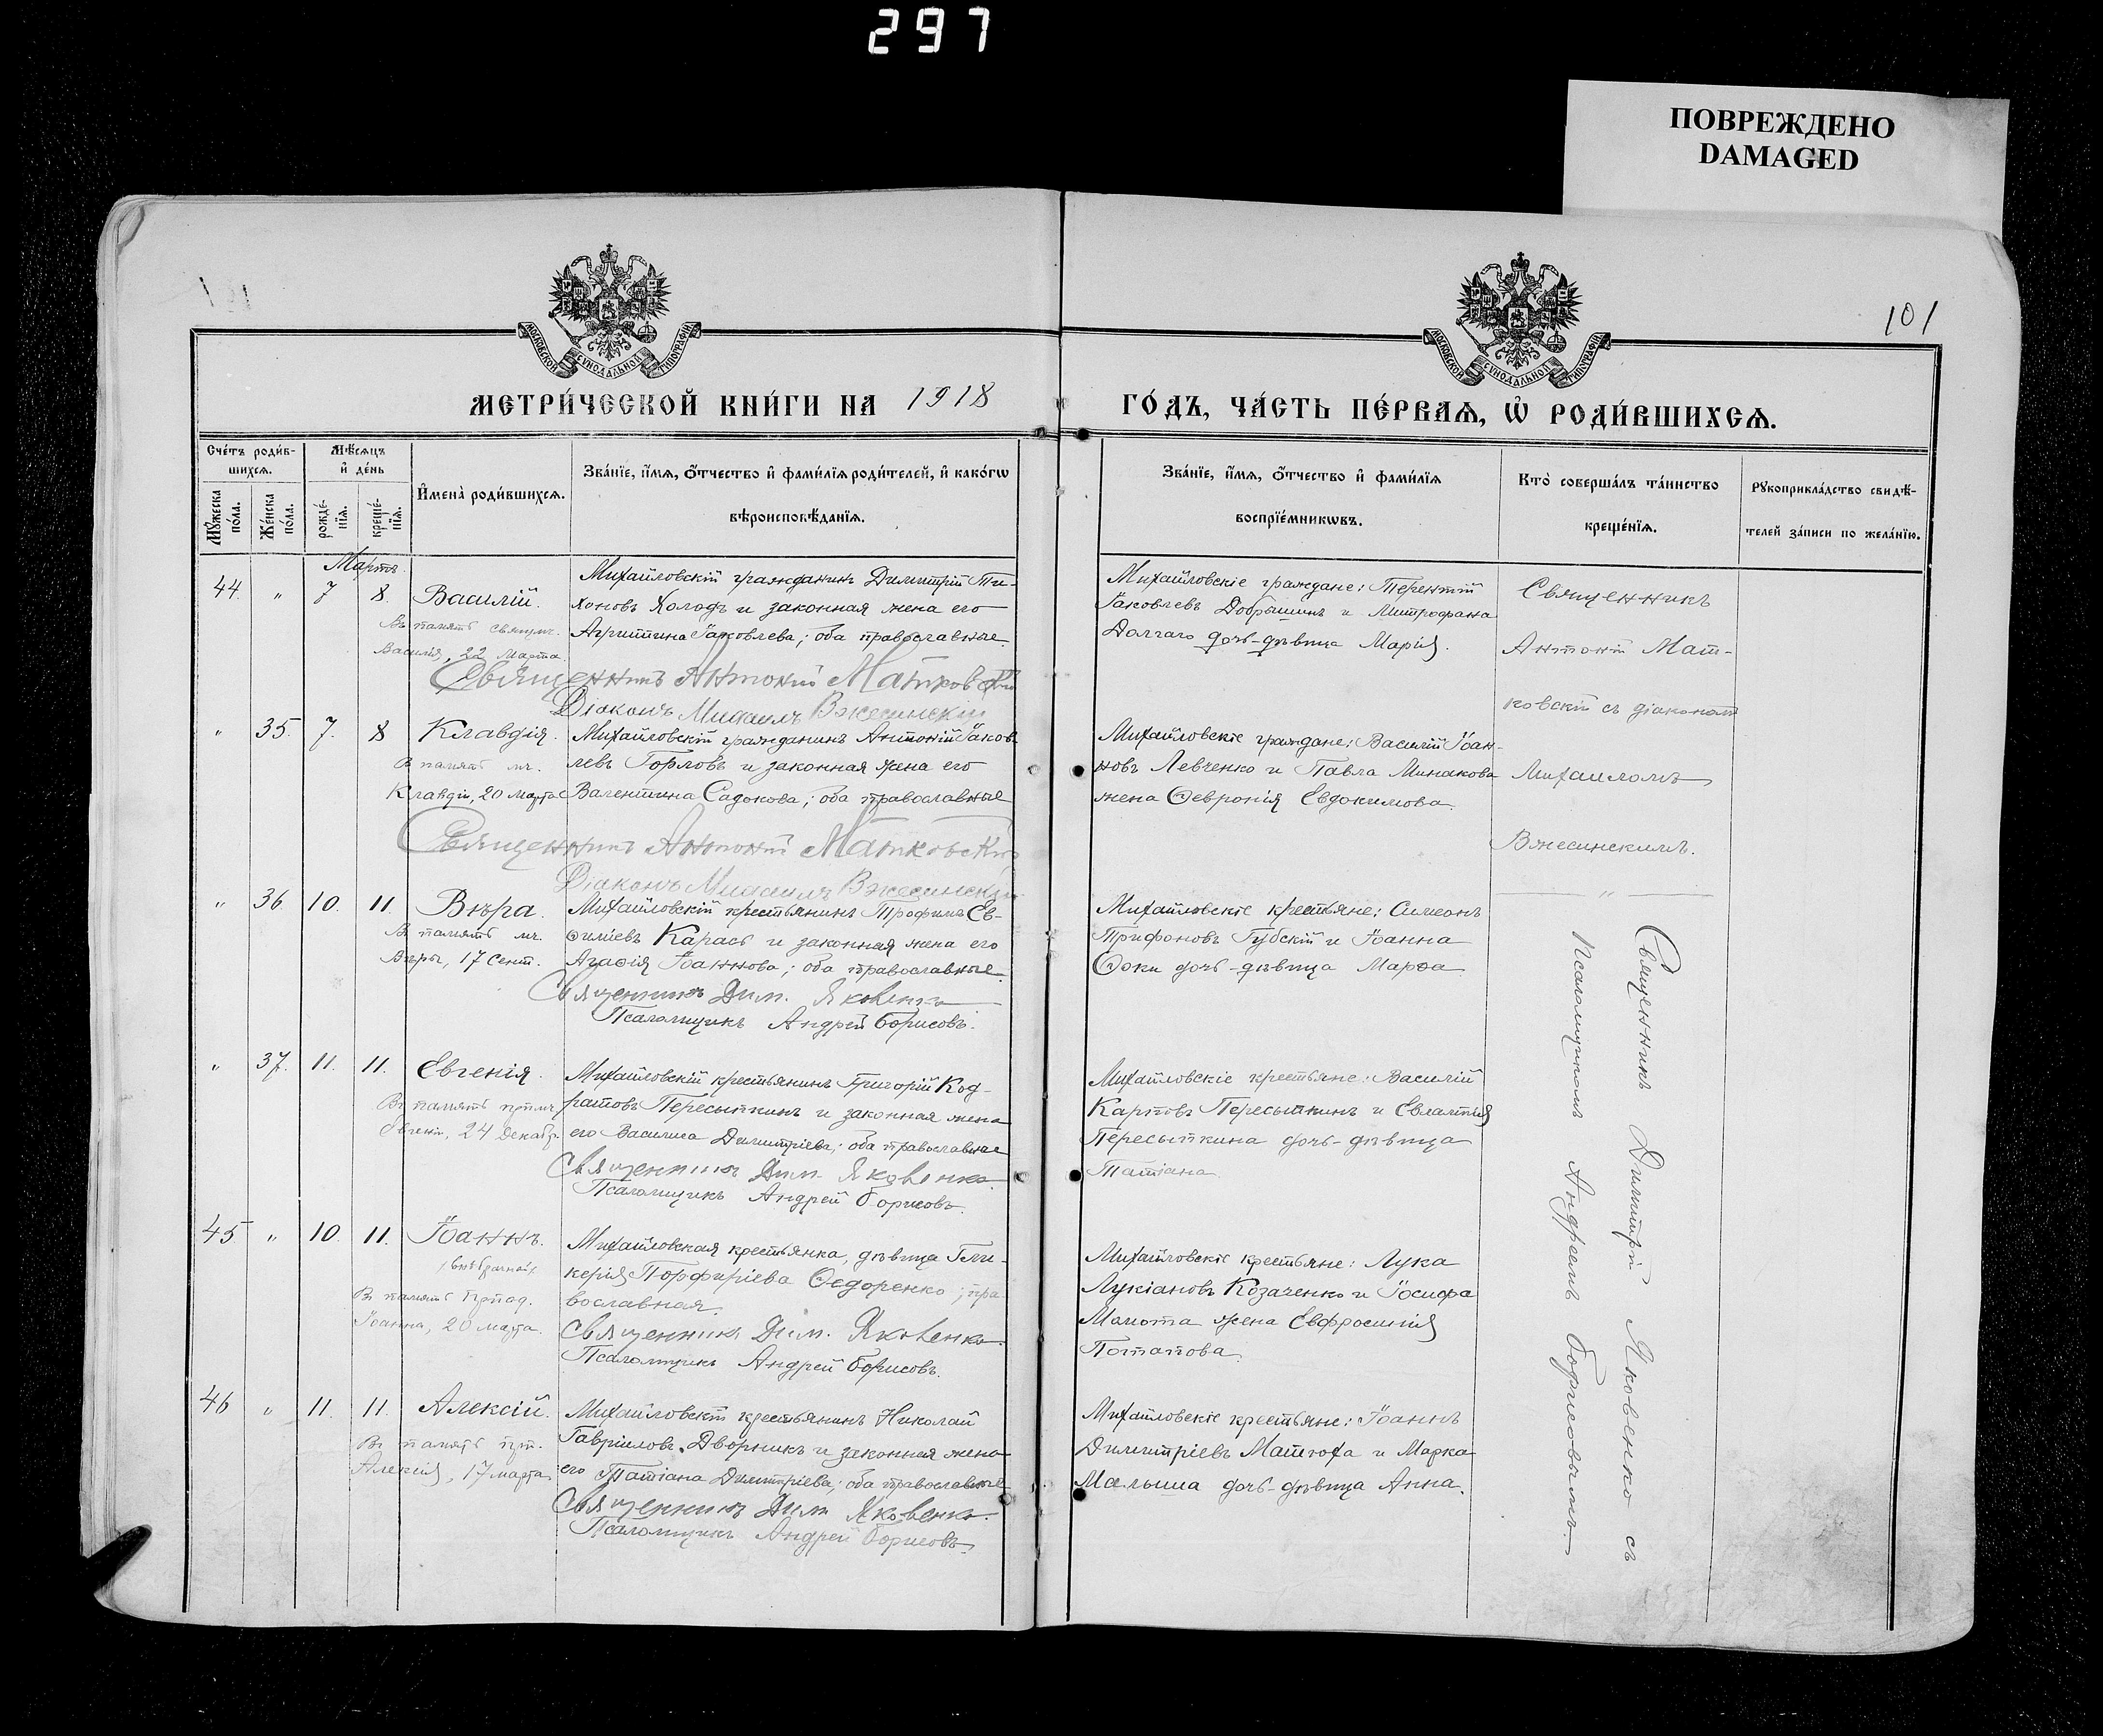 297
ПОВРЕЖДЕНО
DAMAGED
101
МОСКОВСКОЙ СУНОДАЛЬНОЙ ТИПОГРАФІИ
МОСКОВСКОЙ СУНОДАЛЬНОЙ ТИПОГРАФІИ
МЕТРИ́ЧЕСКОЙ КНИ́ГИ НА 1918
ГО́ДЪ, ЧА́СТЬ ПЕ́РВАѦ, Ѡ҆ РОДИ́ВШИХСѦ.
Сче́тъ роди́в-
шихсѧ.
Мѣ́сѧцъ
и҆ де́нь
Мꙋ́жеска
по́ла.
Же́нска
по́ла.
рожде́-
нїѧ.
креще́-
нїѧ.
И҆мена̀ роди́вшихсѧ.
Зва́нїе, и҆́мѧ, ѻ҆́тчество и҆ фами́лїѧ роди́телей, и҆ како́гѡ
вѣроисповѣ́данїѧ.
Зва́нїе, и҆́мѧ, ѻ҆́тчество и҆ фами́лїѧ
воспрїе́мникѡвъ.
Кто̀ соверша́лъ та́инство
креще́нїѧ.
Рꙋкоприкла́дство свидѣ́-
телей за́писи по жела́нїю.
Мартъ.
44. " 7 8. Василій.
Въ память свящмч.
Василія, 22 Марта.
Михайловскій гражданинъ Димитрій Ти-
хоновъ Холодъ и законная жена его
Агриппина Іаковлева; оба православные
Священникъ Антоній Матковскій
Діаконъ Михаилъ Вжесинскій
Михайловскіе граждане: Терентій
Іаковлевъ Добрышинъ и Митрофана
Долгаго дочь-дѣвица Марія.
Священникъ
Антоній Мат-
ковскій съ діакономъ
Михаиломъ
Вжесинскимъ.
"
" 35. 7. 8 Клавдія.
В память мч.
Клавдіи, 20 марта
Михайловскій гражданинъ Антоній Іаков-
левъ Горловъ и законная жена его
Валентина Садокова; оба православные
Священникъ Антоній Матковскій
Діаконъ Михаилъ Вжесинскій
Михайловскіе граждане: Василій Іоан-
новъ Левченко и Павла Минакова
жена Ѳевронія Евдокимова.
" 36 10. 11. Вѣра.
Въ память мч.
Вѣры, 17 Сент.
Михайловскій крестьянинъ Трофимъ Ев-
ѳиміевъ Карась и законная жена его
Агаѳія Іоаннова; оба православные
Священникъ Дим. Яковенко
Псаломщикъ Андрей Борисовъ.
Михайловскіе крестьяне: Симеонъ
Трифоновъ Губскій и Іоанна
Фоки дочь-дѣвица Марѳа
Священникъ Димитрій Яковенко съ
Псаломщикомъ Андреемъ Борисовымъ.
" 37. 11. 11. Евгенія.
Въ память прпмч.
Евгеніи, 24 Декабр.
Михайловскій крестьянинъ Григорій Код-
ратовъ Пересыпкинъ и законная жена
его Василиса Димитріева; оба православные
Священникъ Дим. Яковенко.
Псаломщикъ Андрей Борисовъ.
Михайловскіе крестьяне: Василій
Карповъ Пересыпкинъ и Евлампія
Пересыпкина дочь-дѣвица
Татіана.
45 " 10. 11. Іоаннъ.
/внѣбрачный/
Въ память прпод.
Іоанна, 20 марта.
Михайловская крестьянка, дѣвица Гли-
керія Порфиріева Ѳедоренко; пра-
вославная.
Священникъ Дим. Яковенко.
Псаломщикъ Андрей Борисовъ.
Михайловскіе крестьяне: Лука
Лукіановъ Козаченко и Іосифа
Мамота жена Евфросинія
Потапова.
46 " 11. 11. Алексій.
Въ память прп.
Алексія, 17 марта.
Михайловскій крестьянинъ Николай
Гавріиловъ Дворникъ и законная жена
его Татіана Димитріева; оба православные
Священникъ Дим Яковенко.
Псаломщикъ Андрей Борисовъ.
Михайловскіе крестьяне: Іоаннъ
Димитріевъ Матюха и Марка
Малыша дочь-дѣвица Анна.